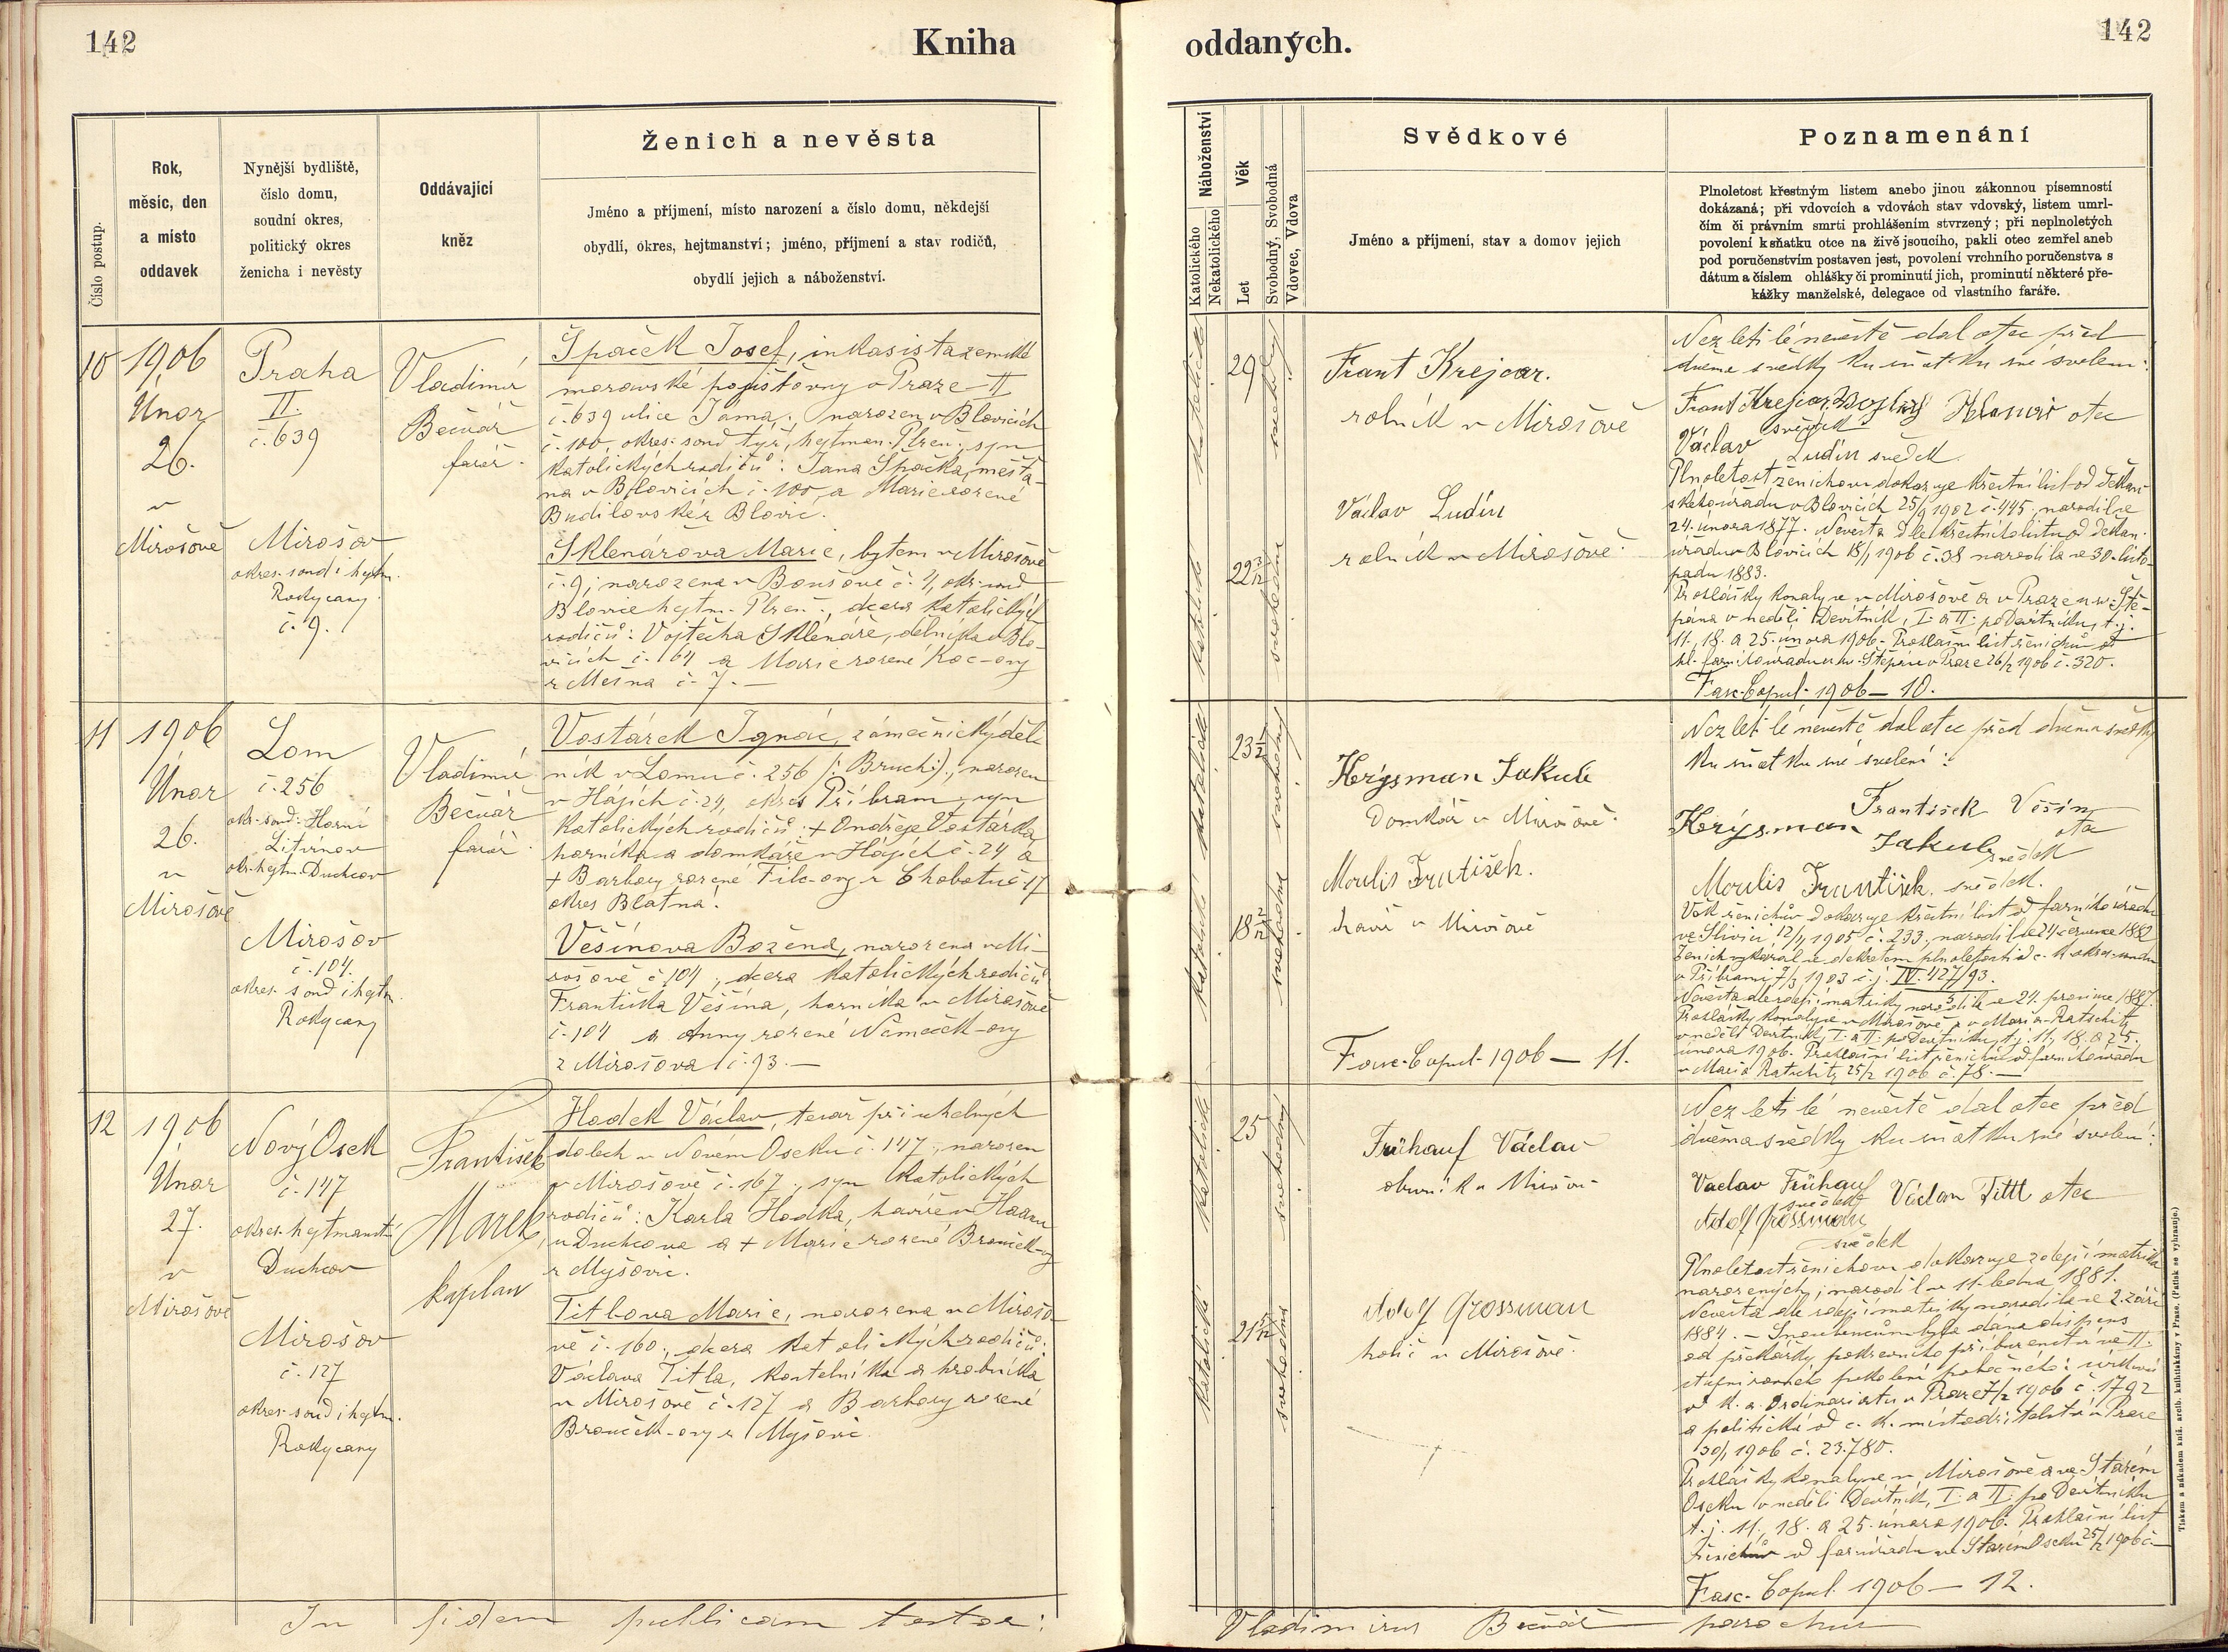 142
Kniha
oddaných.
142
Číslo postup.
Rok,
měsíc, den
a místo
oddavek
Nynější bydliště,
číslo domu,
soudní okres,
politický okres
ženicha i nevěsty
Oddávající
kněz
Ženich a nevěsta
Jméno a příjmení, místo narození a číslo domu, někdejší
obydlí, okres, hejtmanství; jméno, příjmení a stav rodičů,
obydlí jejich a náboženství.
Náboženství
Katolického
Nekatolického
Věk
Let
Svobodný, Svobodná
Vdovec, Vdova
Svědkové
Jméno a příjmení, stav a domov jejich
Poznamenání
Plnoletost křestným listem anebo jinou zákonnou písemností
dokázaná; při vdovcích a vdovách stav vdovský, listem umrl-
čím či právním smrti prohlášením stvrzený; při neplnoletých
povolení k sňatku otce na živě jsoucího, pakli otec zemřel aneb
pod poručenstvím postaven jest, povolení vrchního poručenstva s
dátum a číslem ohlášky či prominutí jich, prominutí některé pře-
kážky manželské, delegace od vlastního faráře.
10
1906
Únor
26.
v
Mirošově
Praha
II.
č. 639
Mirošov
okres. soud i hejtm.
Rokycany
č. 9.
Vladimír
Bečvář
farář.
Špaček Josef, inkasista zemské
moravské pojišťovny v Praze-II
č. 639 ulice Jámá; narozen v Blovicích
č. 100, okres. soud týž, hejtman. Plzeň; syn
katolických rodičů: Jana Špačka, měšťa-
na v Blovicích č. 100, a Marie rozené
Budilovské z Blovic.
Sklenářova Marie, bytem v Mirošově
č. 9; narozena v Boušově č. 4, okr. soud
Blovice hejtm. Plzeň., dcera katolických
rodičů: Vojtěcha Sklenáře, dělníka v Blo-
vicích č. 164 a Marie rozené Koc-ovy
z Mešna č. 7. —
katolické
29
svobodný
katolické
22 3/12
svobodná
Frant Krejcar.
rolník v Mirošově
Václav Ludín
rolník v Mirošově.
Nezletilé nevěstě dal otec před
dvěma svědky ku sňatku své svolení:
Frant Krejcar
svědek
otec
Václav Ludín svědek.
Plnoletost ženichovu dokazuje křestní list od děkan-
ského úřadu v Blovicích 25/9 1902 č. 445, narodil se
24. února 1877. Nevěsta dle křestního listu od děkan.
úřadu v Blovicích 18/1 1906 č. 38 narodila se 30. listo-
padu 1883.
Prohlášky konaly se v Mirošově a v Praze u sv. Ště-
pána v neděli Devítník, I. a II. po Devítníku, t. j.
11., 18. a 25. února 1906. Prohlašní list ženichův od
hl. farního úřadu u sv. Štěpána v Praze 26/2 1906 č. 320.
Fasc. Copul. 1906 — 10.
11
1906
Únor
26.
v
Mirošově
Lom
č. 256
okr. soud. Horní
Litvínov
okr. hejtm. Duchcov
Mirošov
č. 104.
okres. soud i hejtm.
Rokycany
Vladimír
Bečvář
farář.
Vostárek Ignác, zámečnický děl-
ník v Lomu č. 256 (: Bruch:); narozen
v Hájích č. 24, okres Příbram; syn
katolických rodičů: + Ondřeje Vostárka
horníka a domkáře v Hájích č. 24 a
+ Barbory rozené Filc-ovy z Chobotu č. 17
okres Blatná.
Věšínova Božena, narozena v Mi-
rošově č. 104, dcera katolických rodičů:
Františka Věšína, horníka v Mirošově
č. 104 a Anny rozené Němeček-ovy
z Mirošova č. 93. —
katolické
23 1/2
svobodný
katolické
18 2/12
svobodná
Herýsman Jakub
domkář v Mirošově.
Moulis František.
havíř v Mirošově
Fasc. Copul. 1906 — 11.
Nezletilé nevěstě dal otec před dvěma svědky
ku sňatku své svolení:
František Věšín
otec
Herýsman Jakub
svědek
Moulis František. svědek.
Věk ženichův dokazuje křestní list od farního úřadu
ve Slivici 12/4 1905 č. 233, narodil se 24. července 1882.
Ženich vykázal se dekretem plnoletosti od c. k. okres. soudu
v Příbrami 7/3 1903 č. j. IV. 427/93.
Nevěsta dle zdejší matriky narodila se 24. prosince 1887.
Prohlášky konaly se v Mirošově a v Maria-Ratschitz
v neděli Devítník, I. a II. po Devítníku, t. j. 11., 18. a 25.
února 1906. Prohlašní list ženichův od farního úřadu
v Maria Ratschitz 25/2 1906 č. 78. —
12
1906
Únor
27.
v
Mirošově
Nový Osek
č. 147
okres. hejtmanství
Duchcov
Mirošov
č. 127
okres. soud i hejtm.
Rokycany
František
Marek,
kaplan
Hodek Václav, tesař při uhelných
dolech v Novém Oseku č. 147; narozen
v Mirošově č. 167; syn katolických
rodičů: Karla Hodka, havíře v Haanu
u Duchcova a + Marie rozené Brouček-ovy
z Myšovic.
Titlova Marie, narozena v Mirošo-
vě č. 160; dcera katolických rodičů:
Václava Titla, kostelníka a hrobníka
v Mirošově č. 127 a Barbory rozené
Brouček-ovy z Myšovic.
katolické
25
svobodný
katolické
21 5/12
svobodná
Frühauf Václav
obuvník v Mirošov-
Adolf Grossman
holič v Mirošově.
Nezletilé nevěstě dal otec před
dvěma svědky ku sňatku své svolení:
Vaclav Frühauf
svědek
Václav Tittl otec
Adolf Grossman
svědek
Plnoletost ženichovu dokazuje zdejší matrika
narozených; narodil se 11. ledna 1881.
Nevěsta dle zdejší matriky narodila se 2. září
1884. — Snoubencům byla dána dispens
od překážky pokrevního příbuzenství ve II.
stupni rovného pokolení pobočného: církevní
od k. a. Ordinariatu v Praze 7/2 1906 č. 1792
a politická od c. k. místodržitelství v Praze
30/1 1906 č. 23.780.
Prohlášky konaly se v Mirošově a ve Starém
Oseku v neděli Devítník, I. a II. po Devítníku
t. j. 11., 18. a 25. února 1906. Prohlašní list
ženichův od far. úřadu ve Starém Oseku 25/2 1906 č —
Fasc. Copul. 1906 — 12.
In fidem publicam testor:
Vladimirus Bečvář parochus
Tiskem a nákladem kníž. arcib. knihtiskárny v Praze. (Patisk se vyhrazuje.)